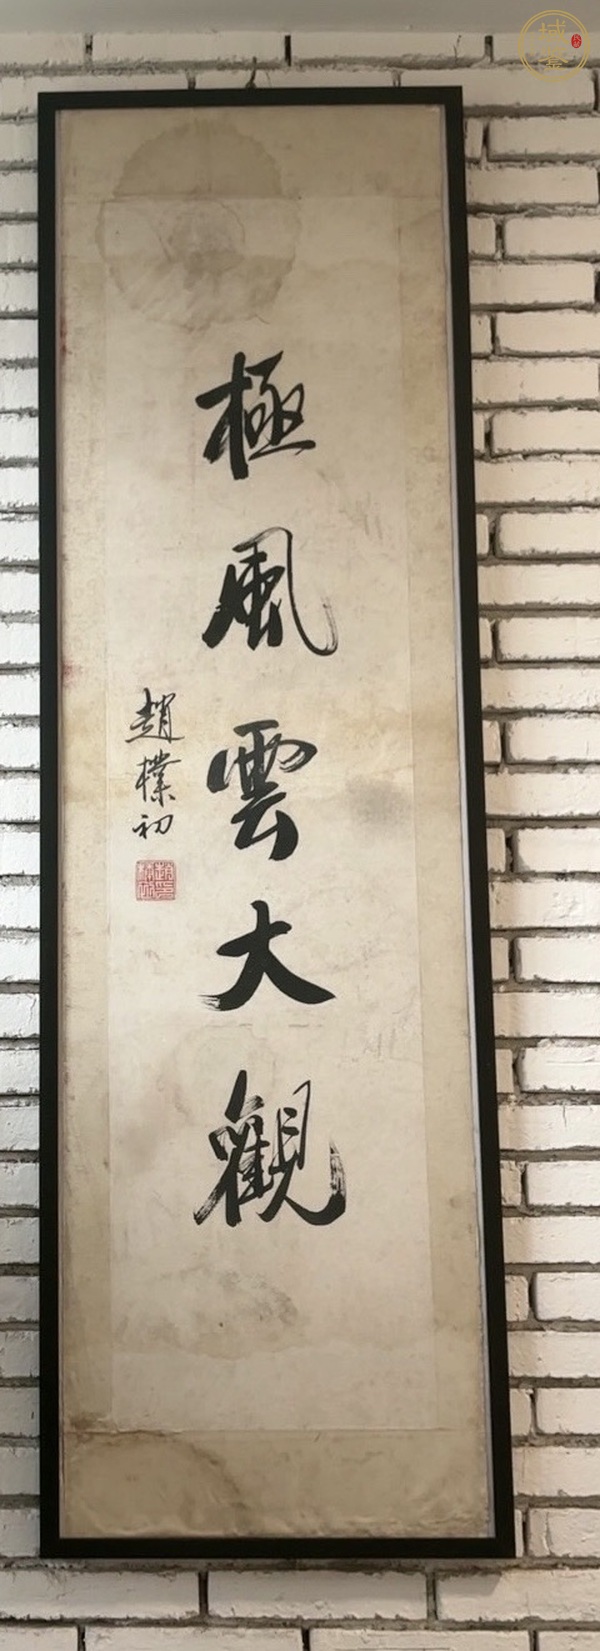 極風雲大觀
趙樸初